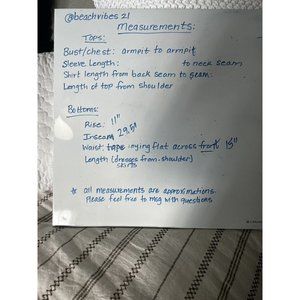 @beachvibes 21
Measurements:
Tops:
Bust/chest: armpit to armpit
Sleeve Length: to neck seam
Shirt length from back seam to seam:
Length of top from shoulder
Bottoms:
Rise: 11"
Inseam: 29.5"
Waist: tape laying flat across front 15"
Length (dresses from shoulder)
skirts
* all measurements are approximations.
Please feel free to msg with questions